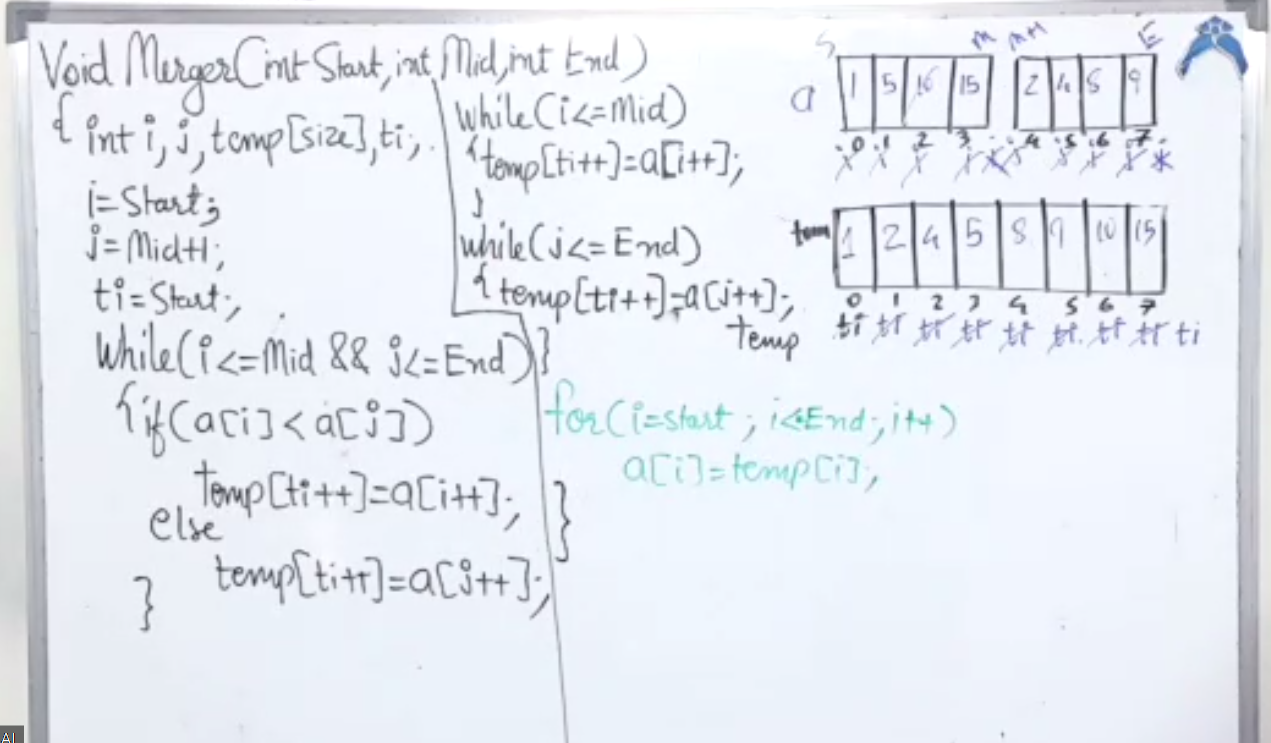 Void Merger(int Start, int Mid, int End)
{ int i, j, temp[size], ti;
i=Start;
j=Mid+1;
ti=Start;
While(i<=Mid && j<=End)
{ if(a[i]<a[j])
temp[ti++]=a[i++];
else
temp[ti++]=a[j++];
}
while(i<=Mid)
{ temp[ti++]=a[i++];
}
while(j<=End)
{ temp[ti++]=a[j++];
}
for(i=start; i<=End; i++)
a[i]=temp[i];
}
S M M+1 E
a 1 5 10 15 2 4 8 9
0 1 2 3 4 5 6 7
tem 1 2 4 5 8 9 10 15
0 1 2 3 4 5 6 7
temp ti ti ti ti ti ti ti ti ti
AI